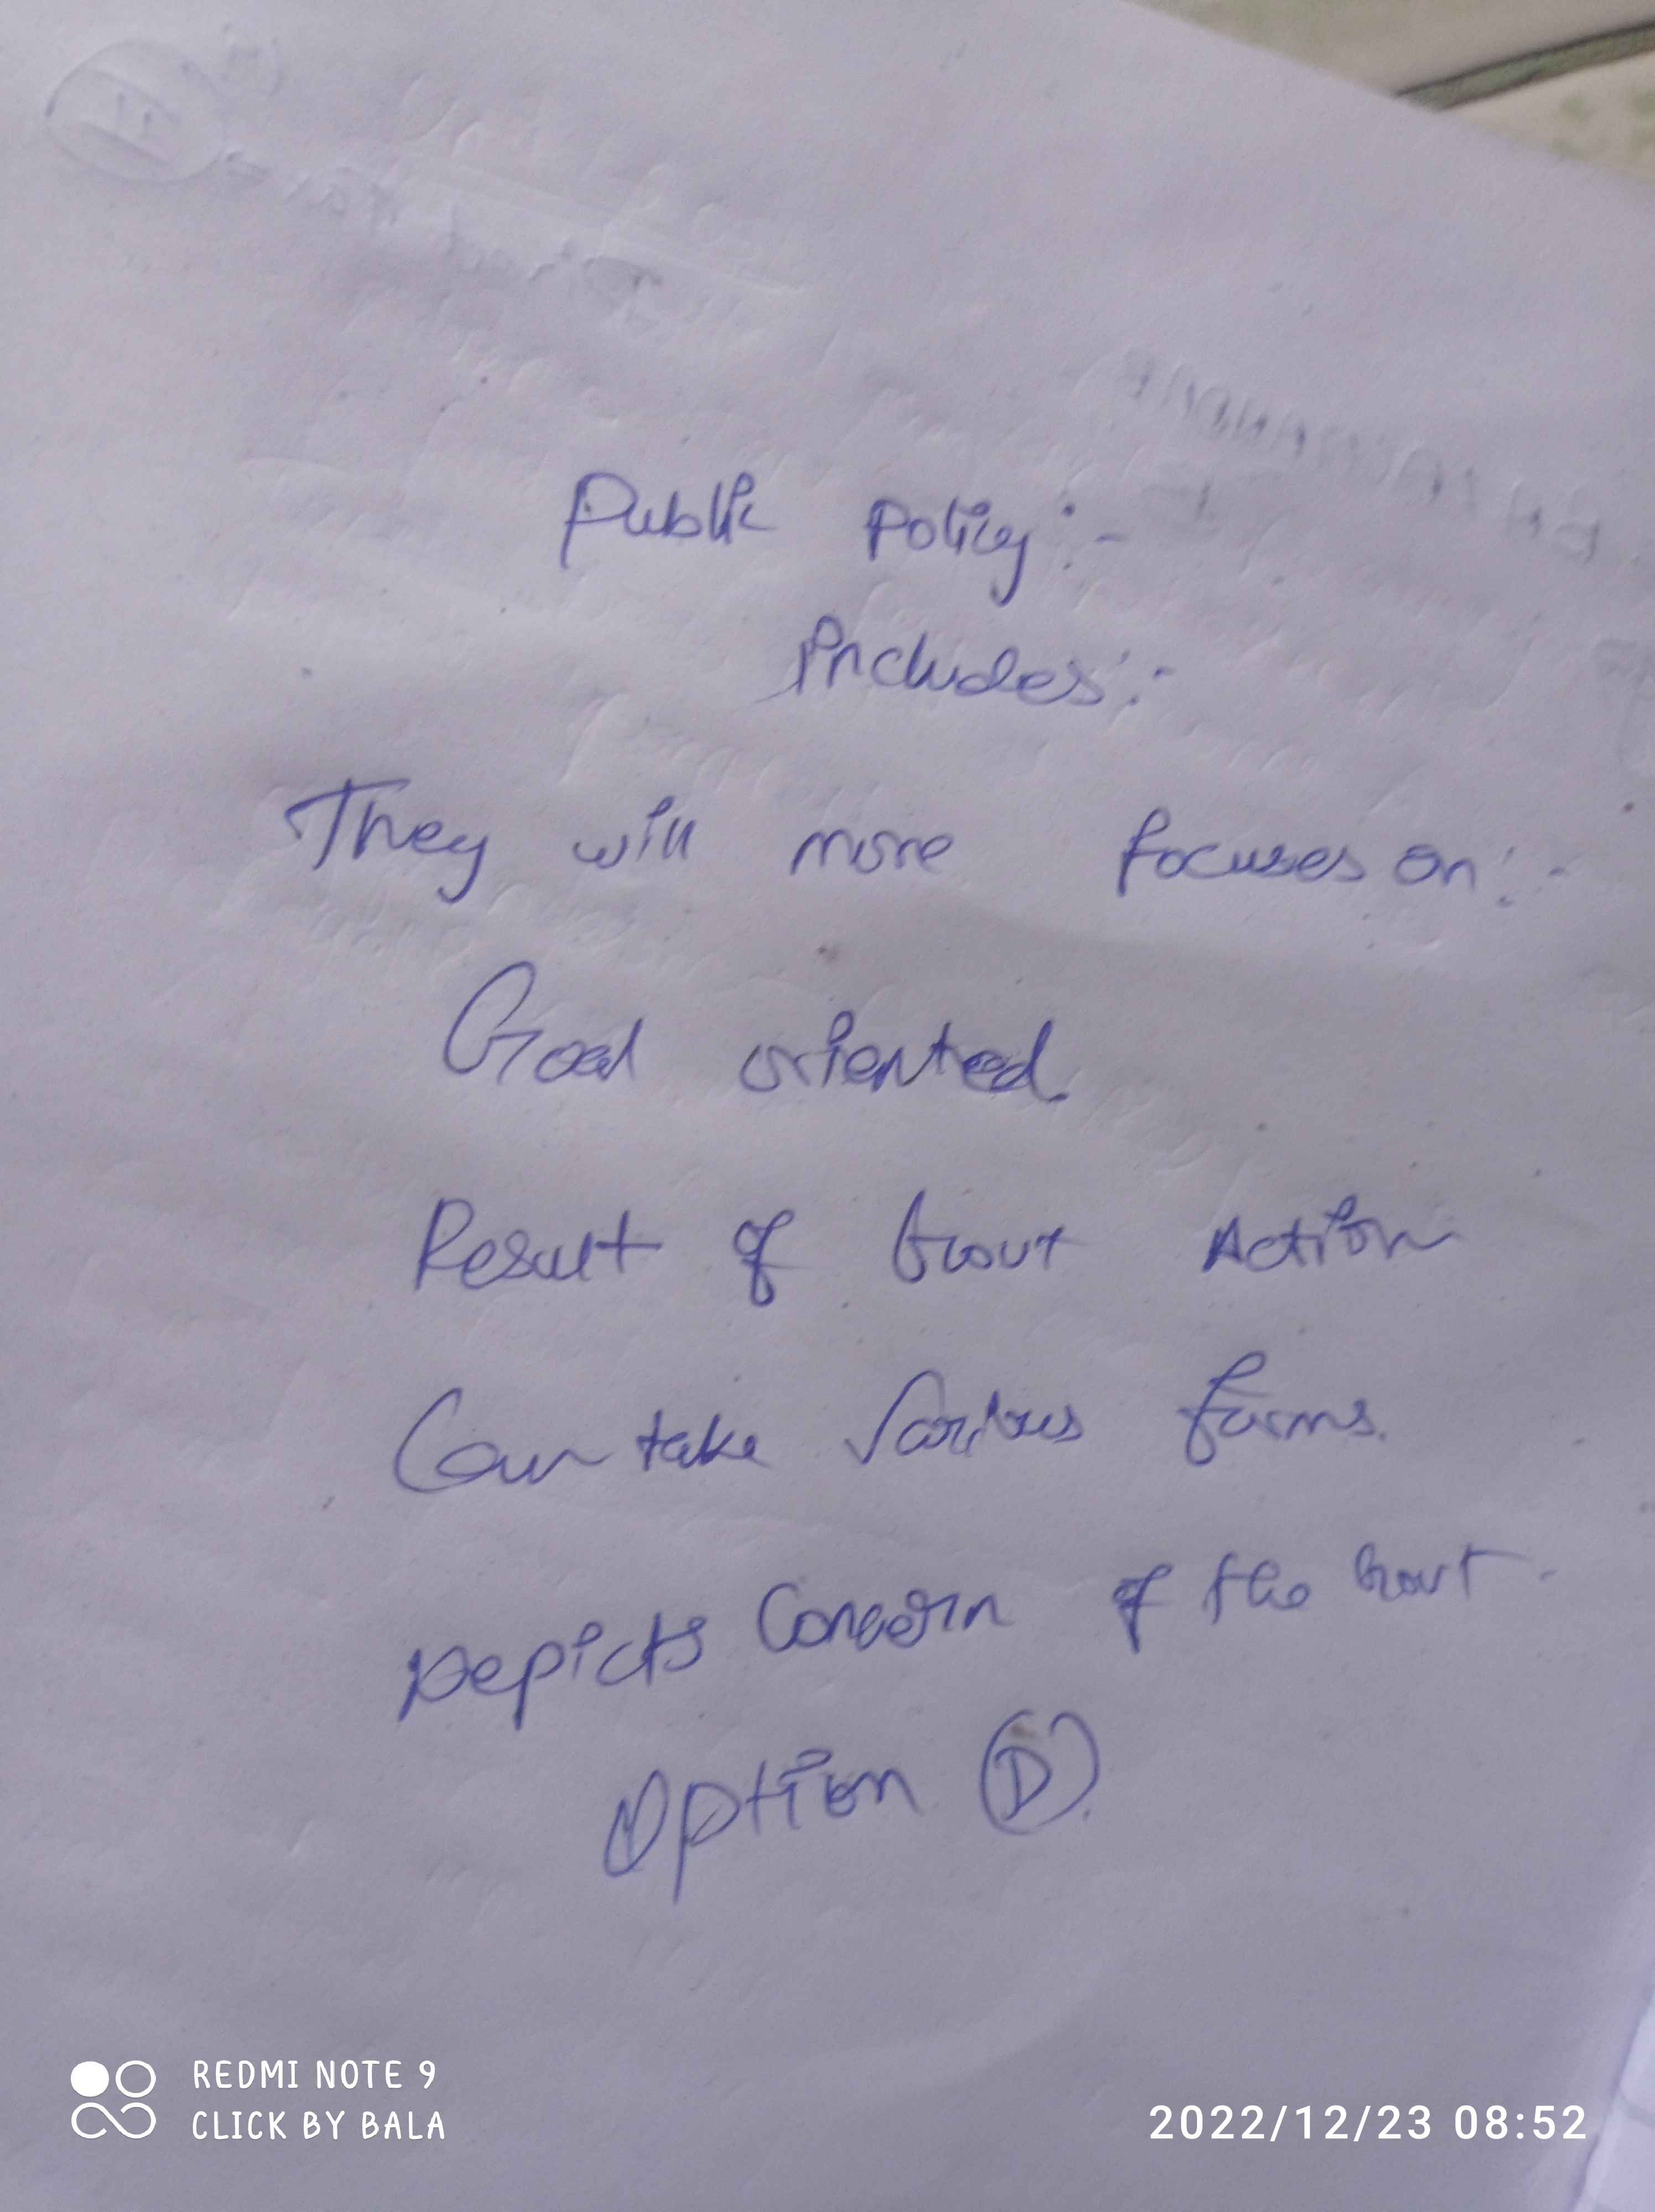 Public policy:-
Includes:-
They will more focuses on:-
Goal oriented.
Result of Govt Action
Can take Various forms.
Depicts Concern of the Govt.
Option (D).
REDMI NOTE 9
CLICK BY BALA
2022/12/23 08:52